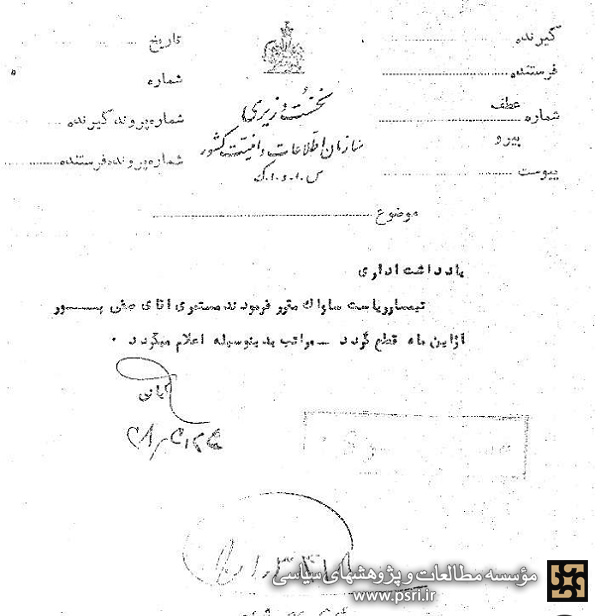 گیرنده
فرستنده
شماره عطف
پیرو
پیوست
نخست وزیری
سازمان اطلاعات و امنیت کشور
س.ا.و.ا.ک
تاریخ
شماره
شماره پرونده گیرنده
شماره پرونده فرستنده
موضوع
یادداشت اداری
تیمسار ریاست ساواک مقرر فرمودند مستمری آقای صفی پور
از این ماه قطع گردد - مراتب بدینوسیله اعلام میگردد .
مؤسسه مطالعات و پژوهشهای سیاسی
www.psri.ir